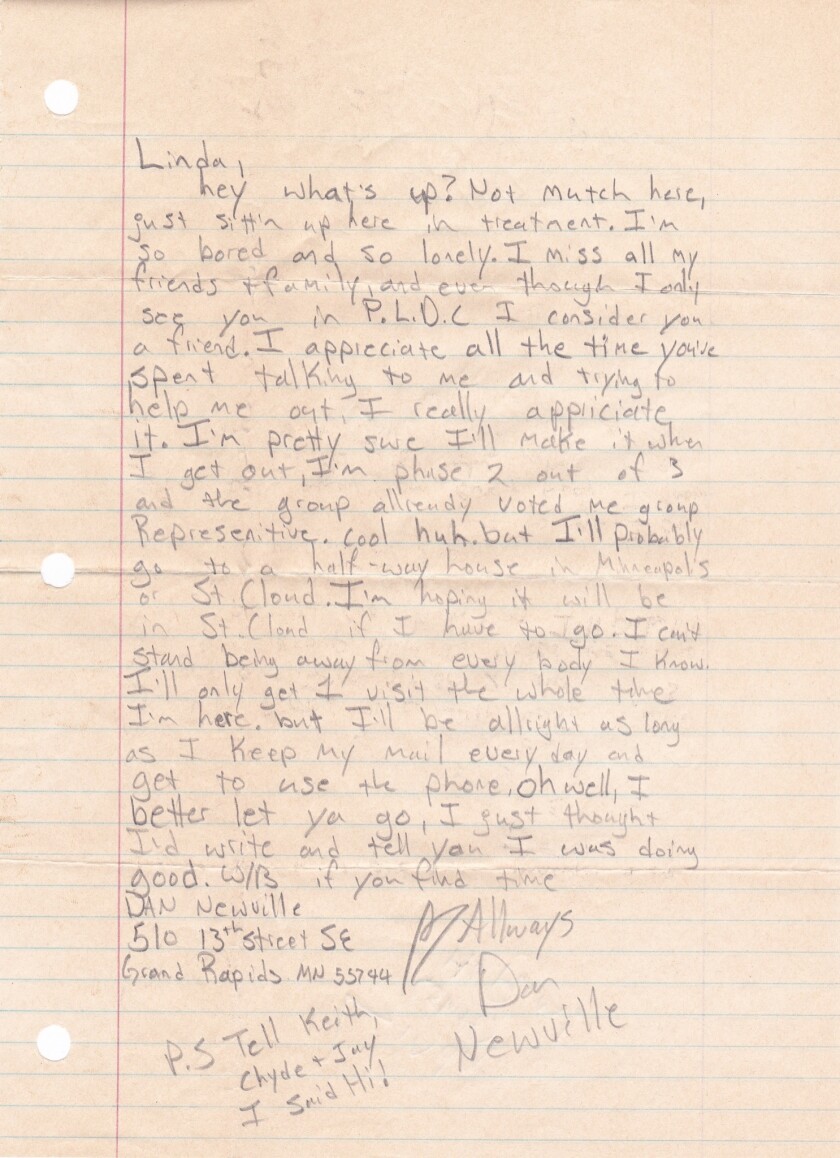 Linda,
hey what's up? Not mutch here,
just sitt'n up here in treatment. I'm
so bored and so lonely. I miss all my
friends + family, and even though I only
see you in P.L.D.C I consider you
a friend. I appreciate all the time you've
spent talking to me and trying to
help me out, I really appriciate
it. I'm pretty sure I'll make it when
I get out, I'm phase 2 out of 3
and the group allready voted me group
Represenitive. cool huh. but I'll probably
go to a half-way house in Minneapolis
or St. Cloud. I'm hoping it will be
in St. Cloud if I have to go. I can't
stand being away from every body I know.
I'll only get 1 visit the whole time
I'm here. but I'll be allright as long
as I keep my mail every day and
get to use the phone, oh well, I
better let ya go, I just thought
I'd write and tell you I was doing
good. W/B if you find time
DAN Newville
510 13th Street SE
Grand Rapids MN 55744
Allways
Dan
Newville
P.S Tell Keith,
Chyde + Jay
I Said Hi!